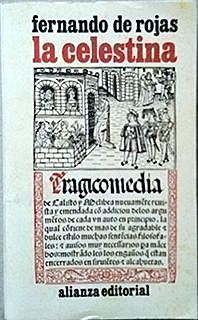 fernando de rojas
la celestina
Tragicomedia
de Calisto y Melibea nueuamẽte reuis
ta y emendada cõ addiciõ de los argu
mẽtos de cada vn auto en principio. la
qual cõtiene de mas de su agradable z
dulce estilo muchas sentẽcias filosofa
les: z auisos muy necessarios pa mãce
bos: mostrãdo les los engaños q̃ estan
encerrados en siruiẽtes z alcahuetas.
alianza editorial